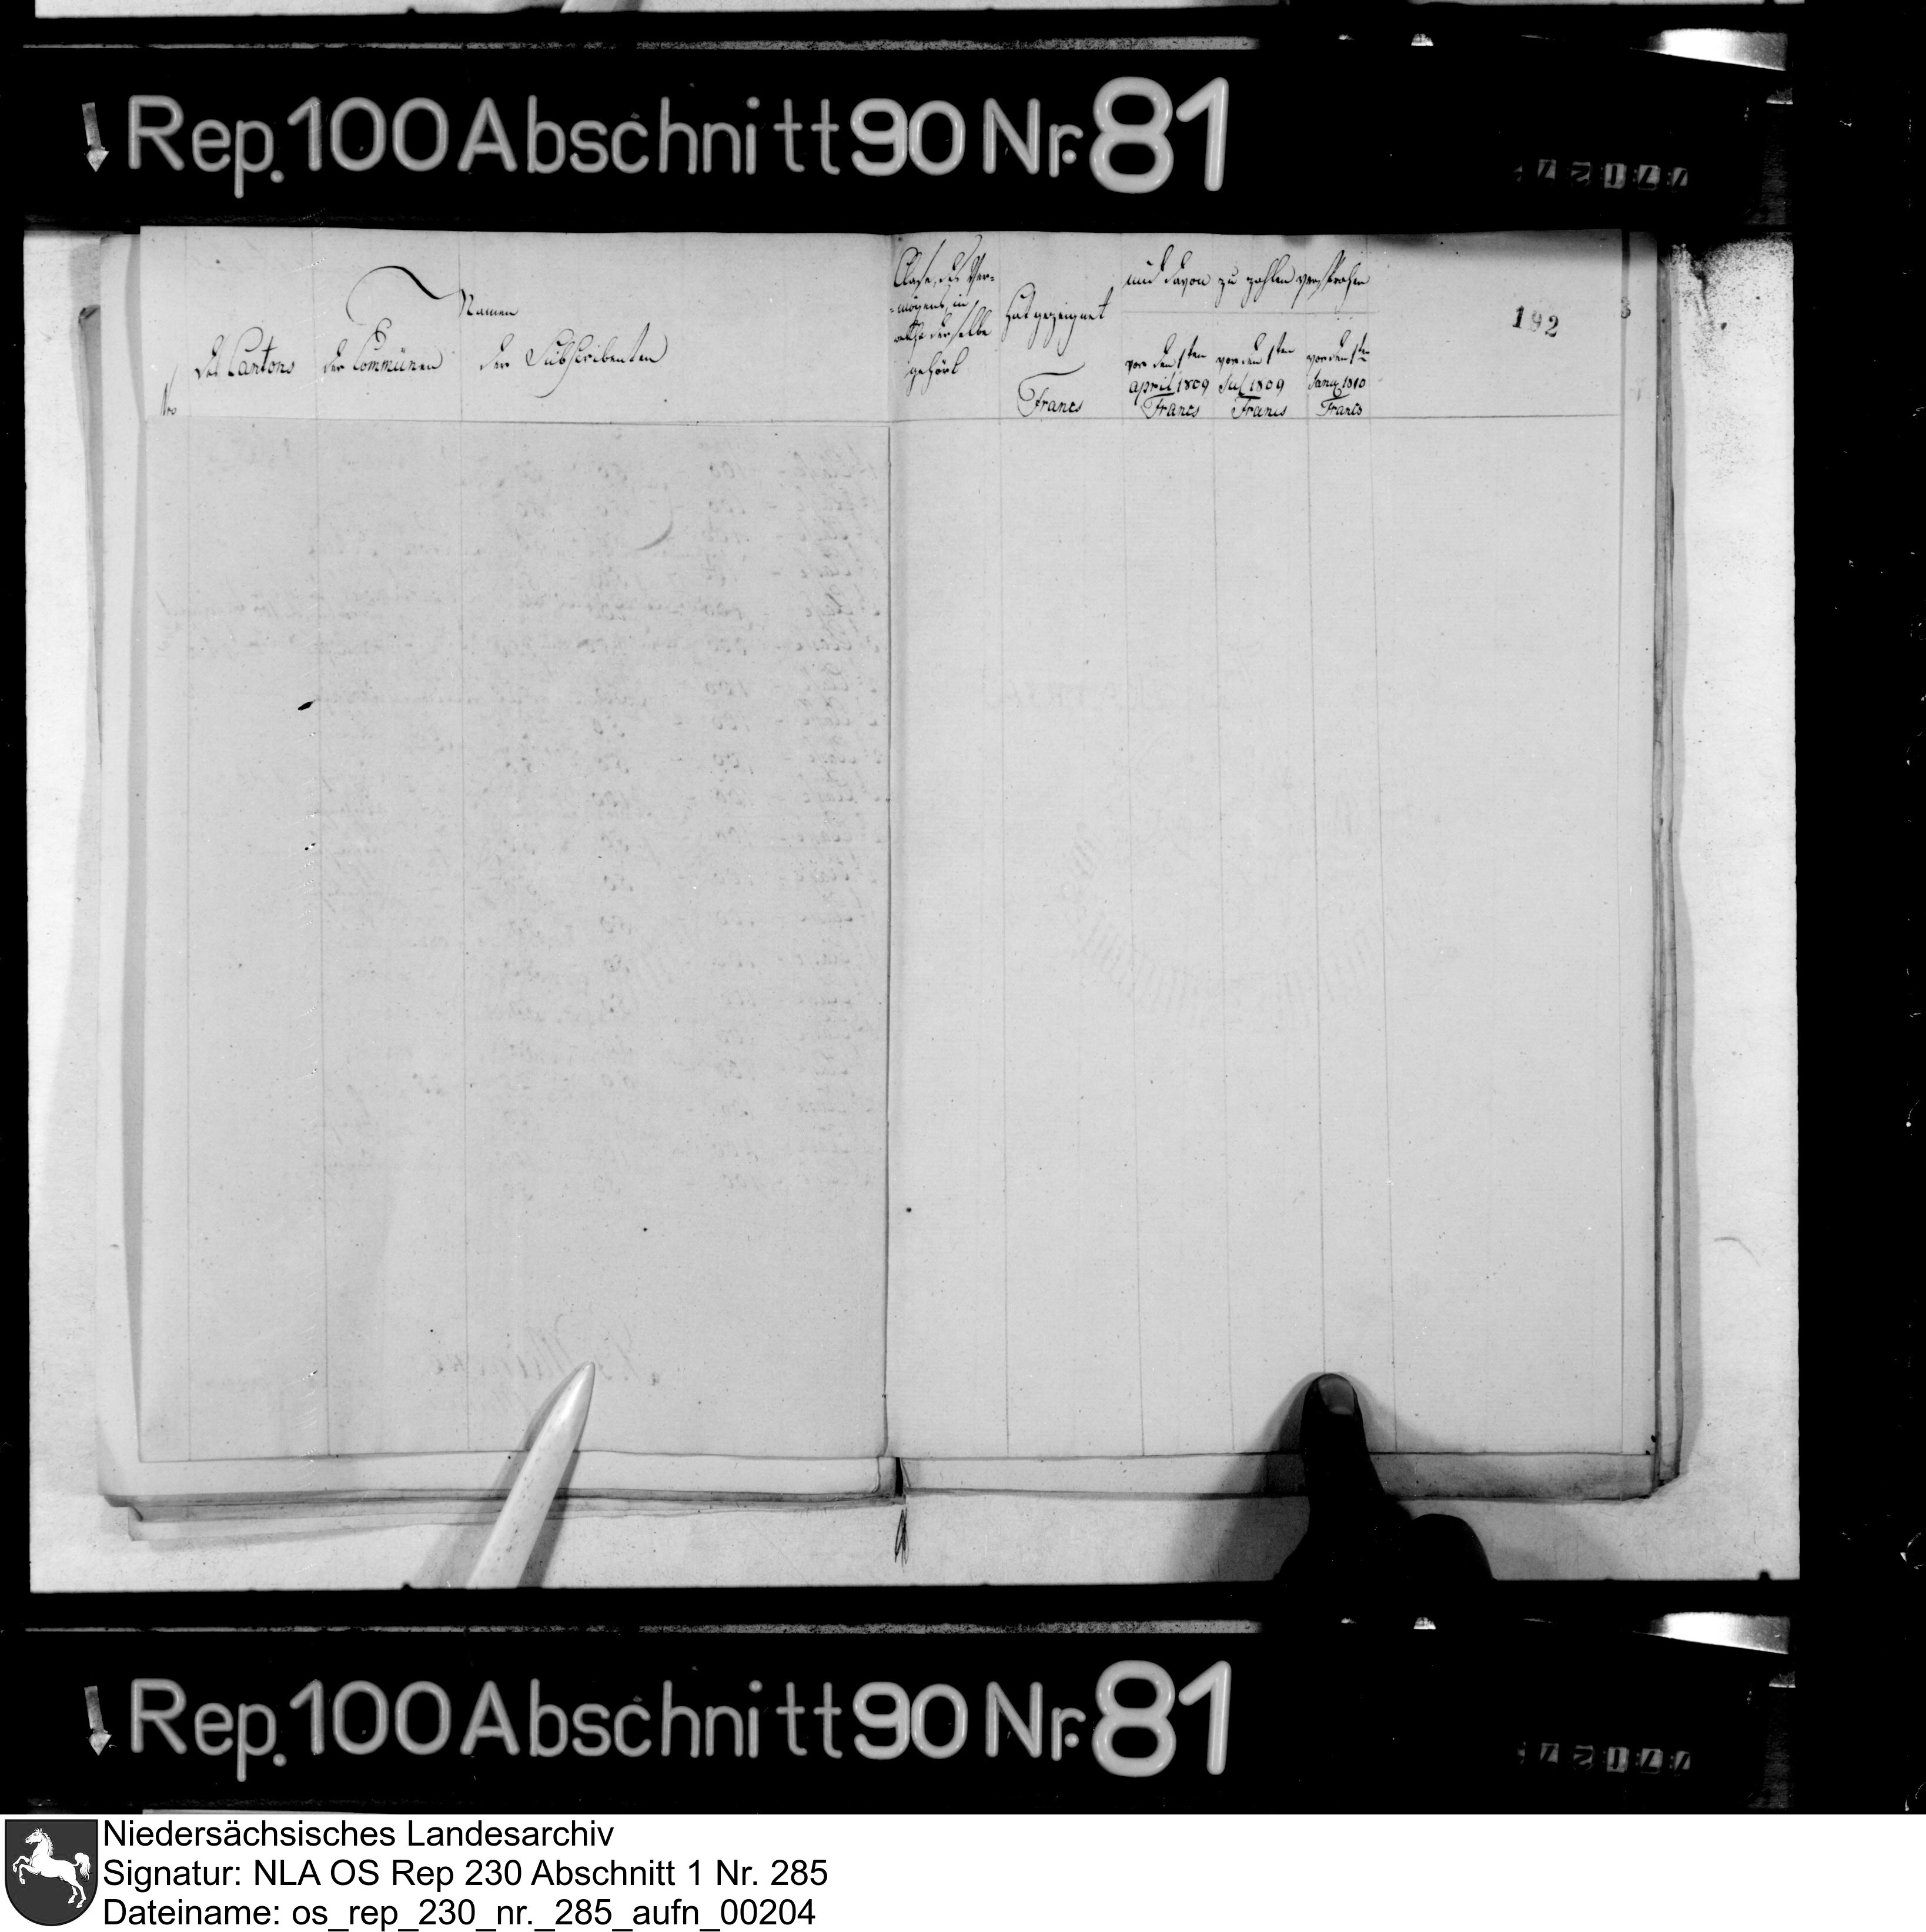 Rep. 100 Abschnitt 90 Nr. 81
Namen
Nro
des Cantons
der Commünen
der Subscribenten
Classe, des Ver-
-mögens, in
welche derselbe
gehört
Hat gezeignet
Francs
und davon zu zahlen versprochen
vor den 1ten
April 1809
Francs
vor den 1ten
Jul 1809
Francs
vor den 1ten
Janu. 1810
Francs
192
Rep. 100 Abschnitt 90 Nr. 81
Niedersächsisches Landesarchiv
Signatur: NLA OS Rep 230 Abschnitt 1 Nr. 285
Dateiname: os_rep_230_nr._285_aufn_00204